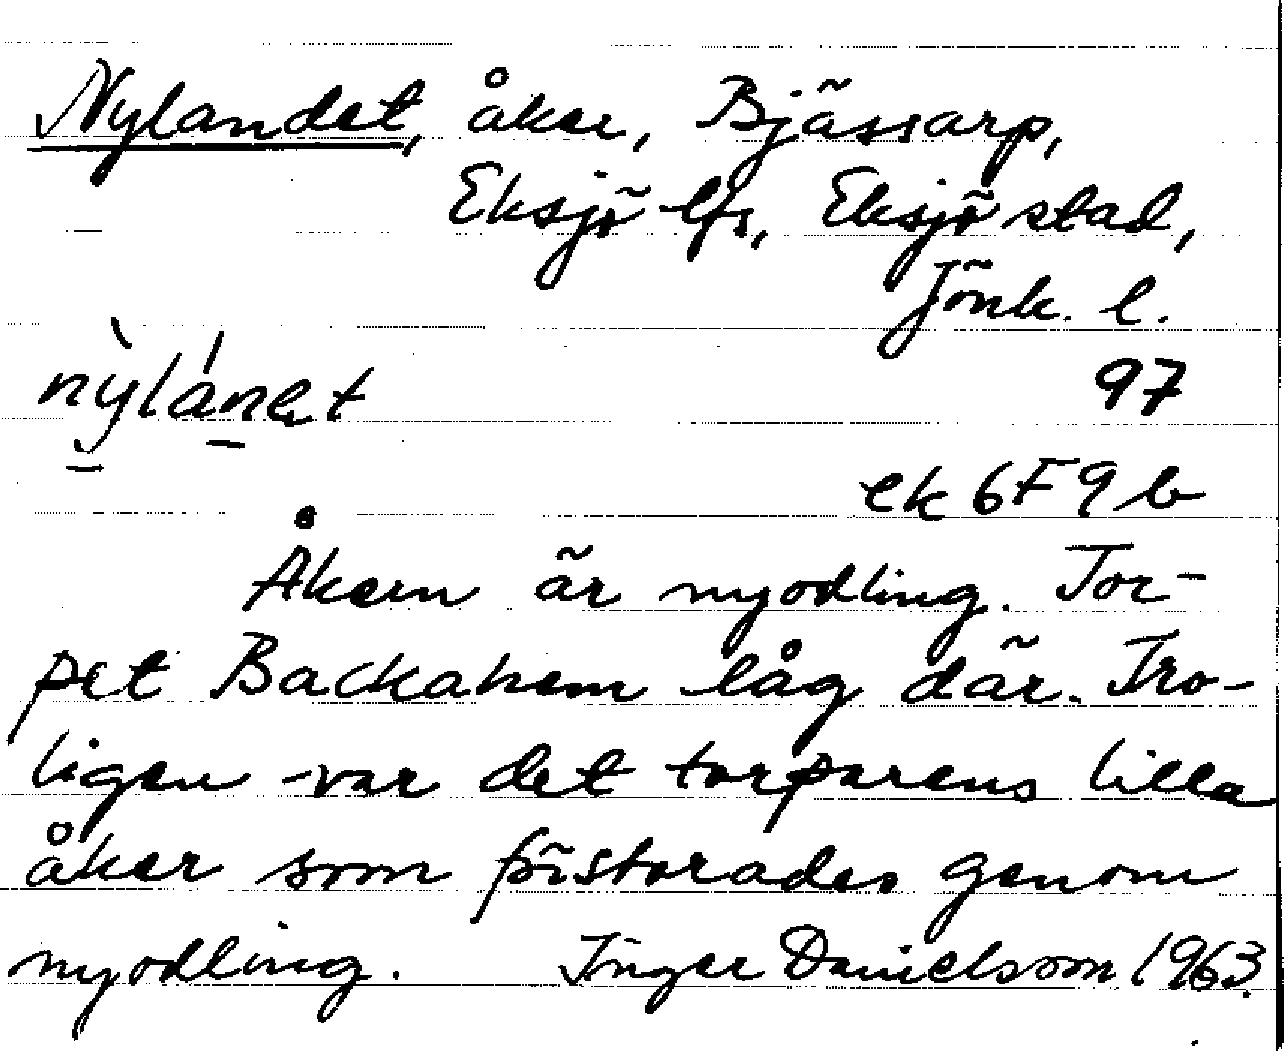 Nylandet, åker, Bjässarp,
Eksjö lfs, Eksjö stad,
Jönk. l.
nỳlánet
97
ek 6F9b
Åkern är nyodling. Tor-
pet Backahem låg där. Tro-
ligen var det torparens lilla
åker som förstorades genom
nyodling. Inger Danielsson 1963.